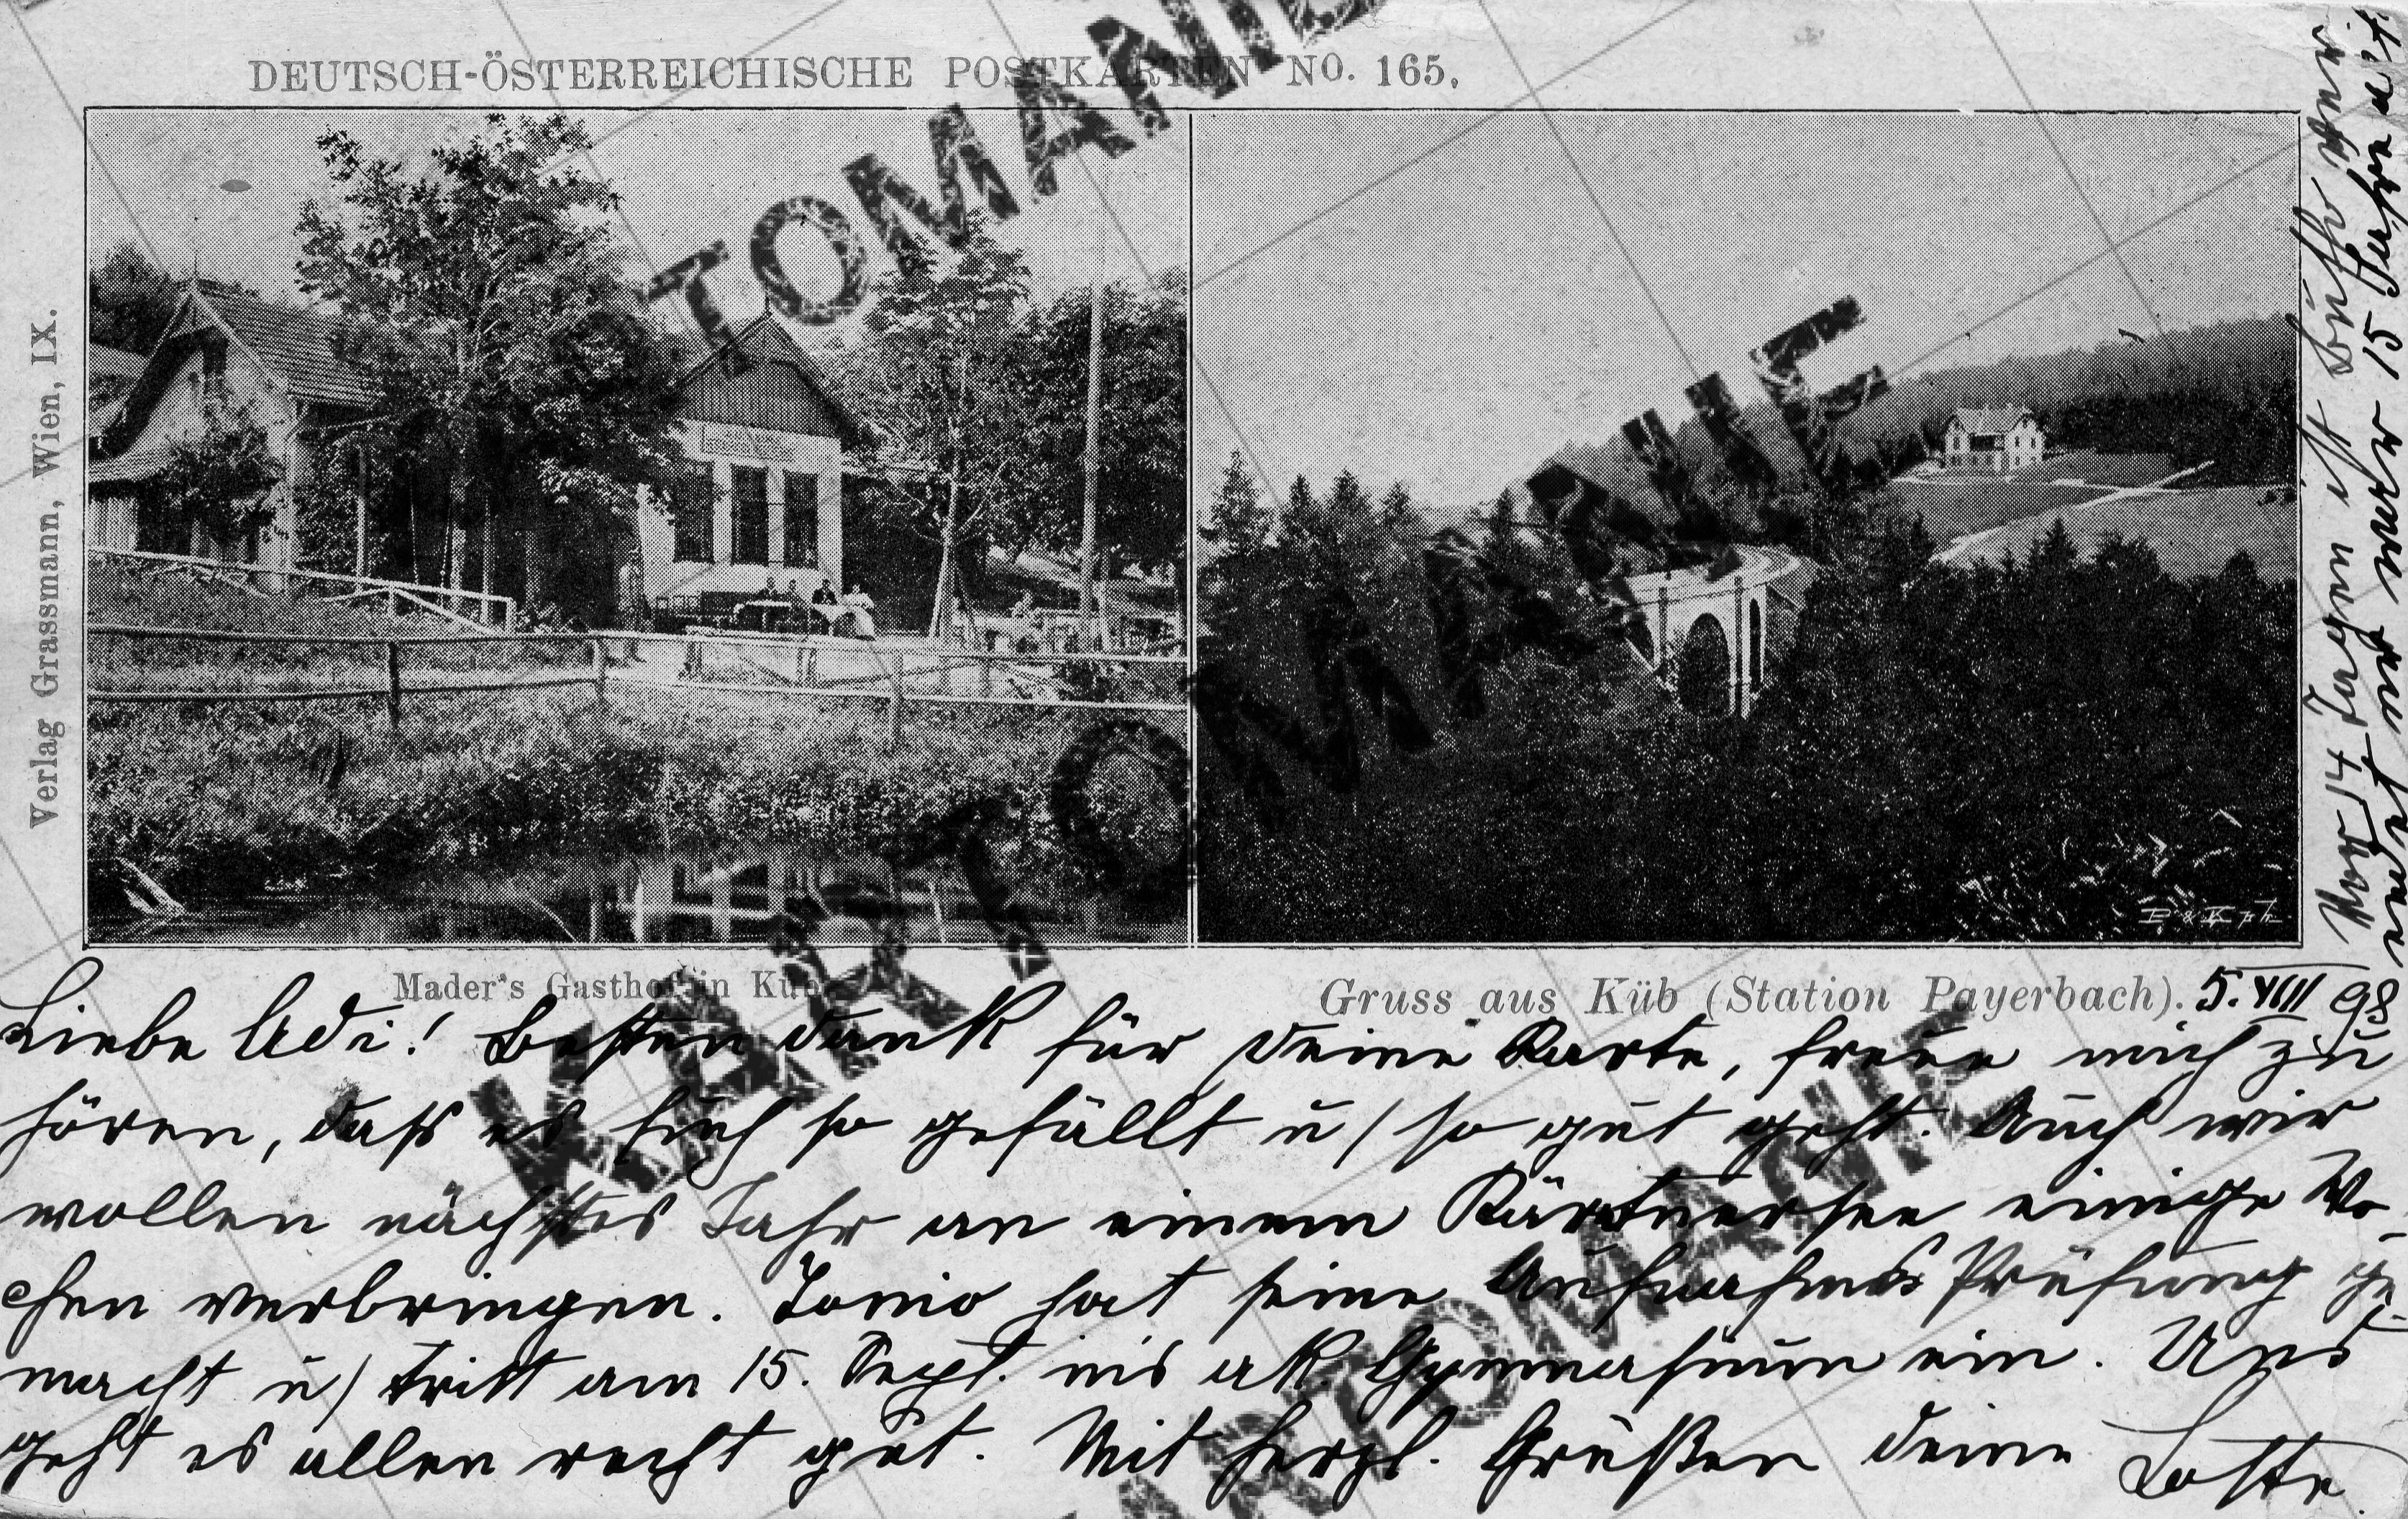 DEUTSCH-ÖSTERREICHISCHE POSTKARTEN NO. 165.
Verlag Grassmann, Wien, IX.
Mader's Gasthof in Küb
Gruss aus Küb (Station Payerbach).
5. VIII 98
Liebe Adi! Besten Dank für deine Karte, freue mich zu
hören, daß es Euch so gefällt u/ so gut geht. Auch wir
wollen nächstes Jahr an einem Kärtnersee einige Wo-
chen verbringen. Tonio hat seine Aufnahms Prüfung ge-
macht u/ tritt am 15. Sept. ins ak. Gymnasium ein. Uns
geht es allen recht gut. Mit herzl. Grüßen deine
Vor 14 Tagen ist
und nur mehr 15 Jahre alt
KARTOMANIE
KARTOMANIE
KARTOMANIE